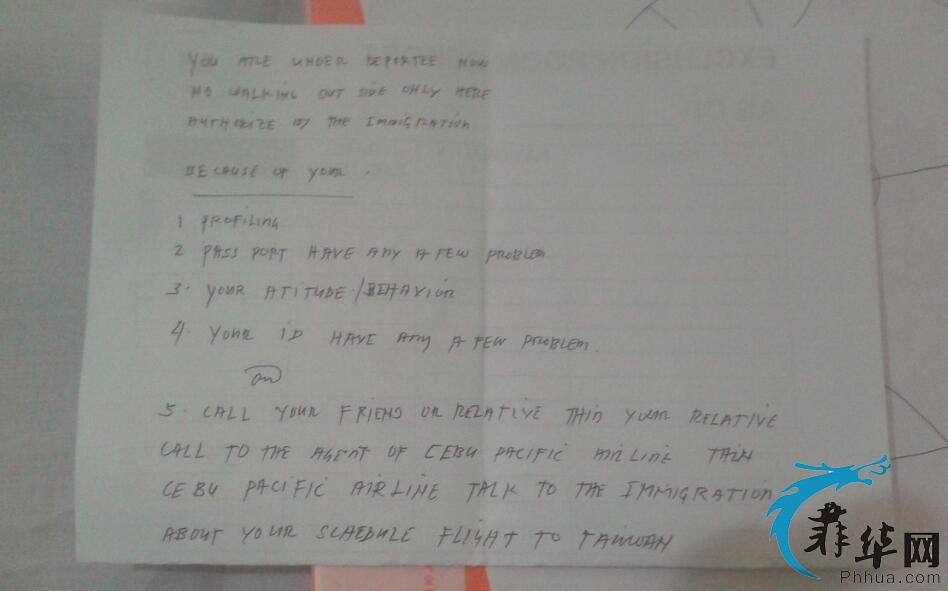 YOU ARE UNDER DEPORTEE NOW
NO WALKING OUT SIDE ONLY HERE
AUTHORIZE BY THE IMMIGRATION
BECAUSE OF YOUR.
1 PROFILING
2 PASS PORT HAVE ANY A FEW PROBLEM
3. YOUR ATITUDE/BEHAVIOR
4. YOUR ID HAVE ANY A FEW PROBLEM.
5. CALL YOUR FRIEND OR RELATIVE THIN YOUR RELATIVE
CALL TO THE AGENT OF CEBU PACIFIC AIRLINE THIN
CEBU PACIFIC AIRLINE TALK TO THE IMMIGRATION
ABOUT YOUR SCHEDULE FLIGHT TO TAIWAN
EXCLUSION ROOM
菲华网
Phhua.com